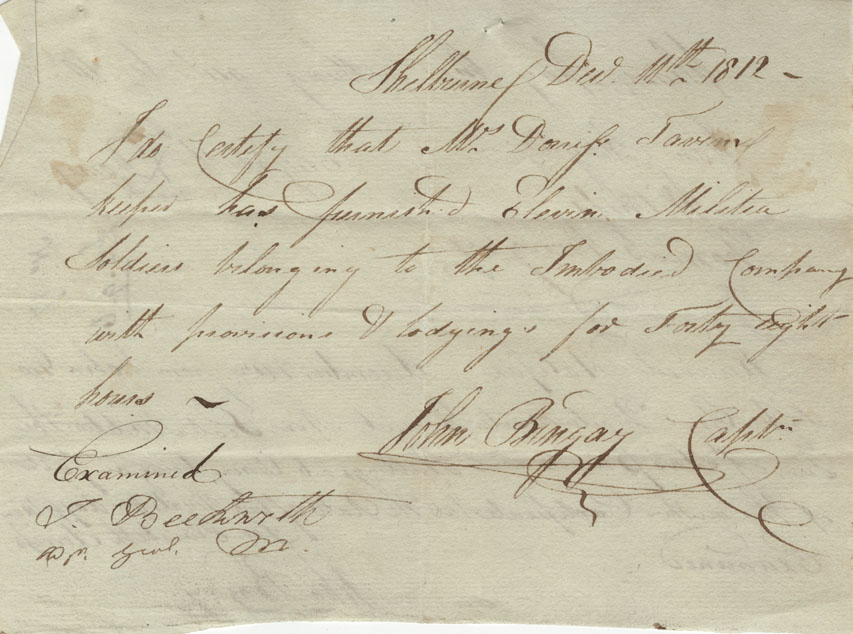 Shelburne Decr. 11th 1812 -
I do Certify that Mrs Tavern
keeper has furnish'd Elevin Militia
Soldiers belonging to the Imbodied Company
with provisions & lodging's for Forty eight
hours ~
John Bingay Captn
Examined
T. Beckwith